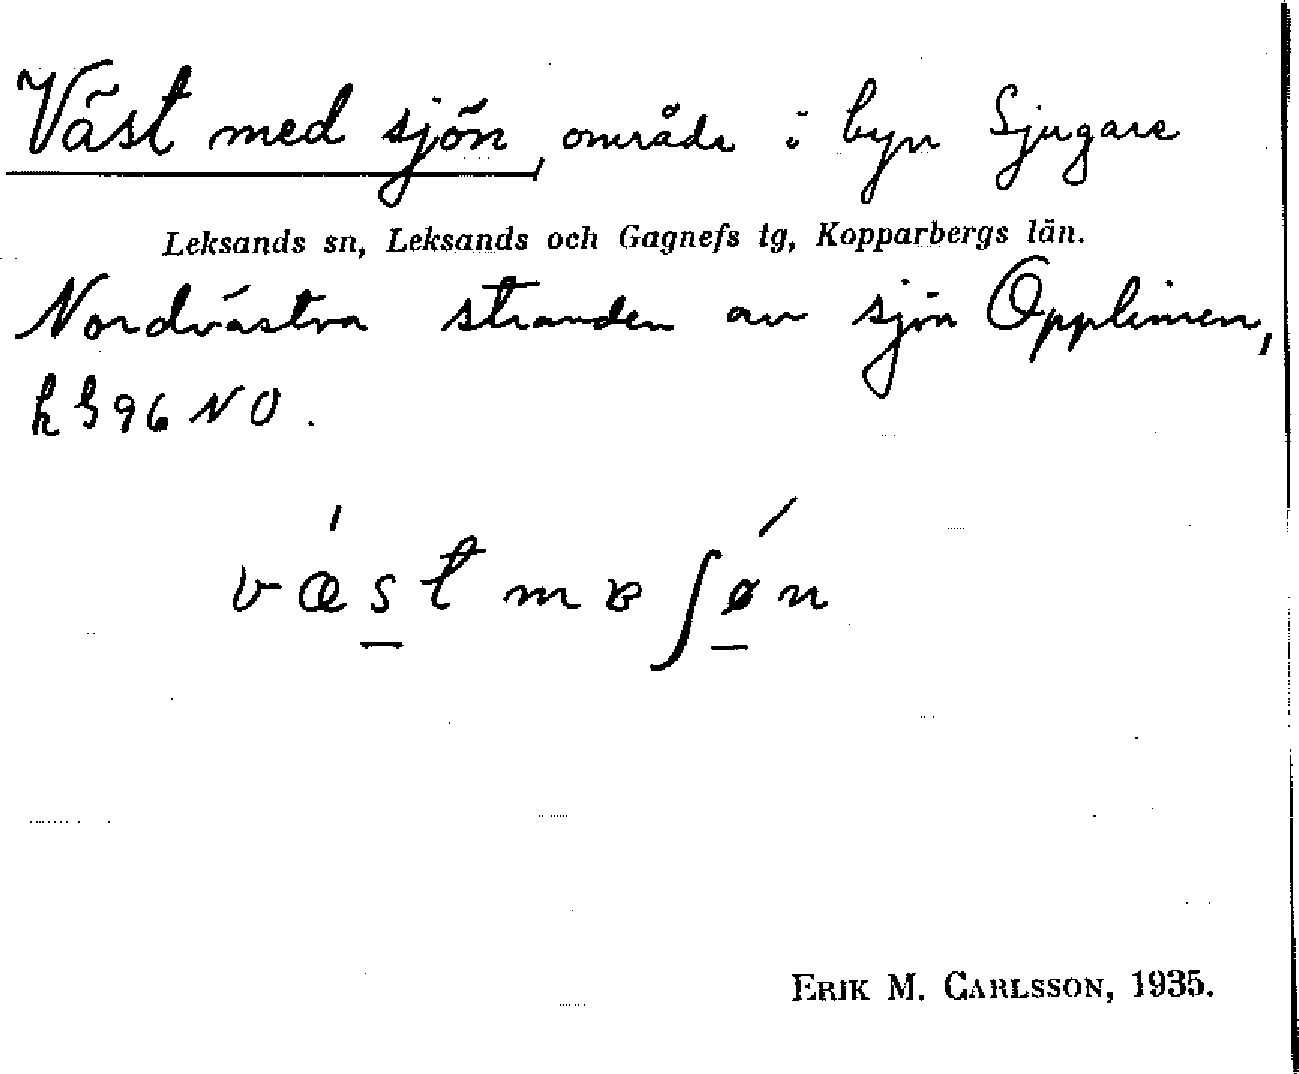 Väst med sjön, område i byn Sjugare
Leksands sn, Leksands och Gagnefs tg, Kopparbergs län.
Nordvästra stranden av sjön Opplimen,
k § 96 NO.
væst mɐ ʃøn
ERIK M. CARLSSON, 1935.